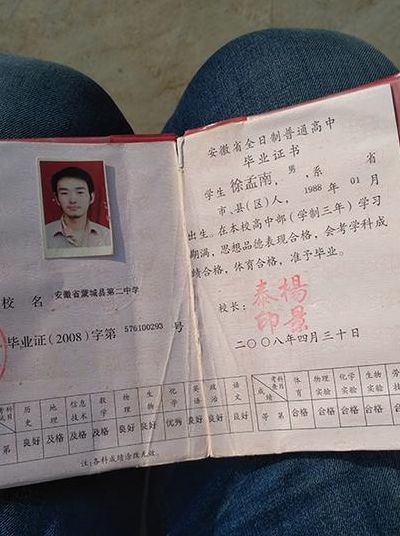 校 名 安徽省蒙城县第二中学
毕业证(2008)字第 576100293 号
历史 地理 信息技术 数学 物理 生物 化学 英语 政治 语文
第 良好 及格 及格 及格 良好 良好 优秀 良好 良好 良好
注:各科成绩涂抹无效
安徽省全日制普通高中
毕业证书
学生徐孟南,男,系 省
市、县(区)人,1988 年 01 月
出生。在本校高中部(学制三年)学习
期满,思想品德表现合格,会考学科成
绩合格,体育合格,准予毕业。
校长:
楊景泰印
二〇〇八年四月三十日
成绩 体育 物理实验 化学实验 生物实验
等第 合格 合格 合格 合格